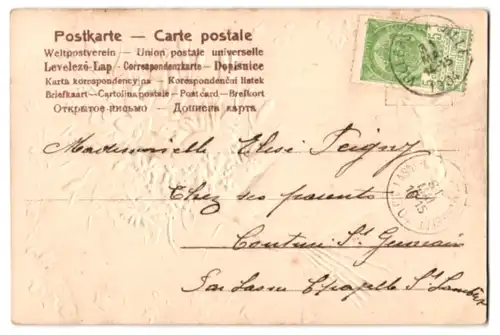 Postkarte — Carte postale
Weltpostverein — Union postale universelle
Levelező-Lap — Correspondenzkarte — Dopisnice
Karta korespondencyjna — Korespondenční lístek
Briefkaart — Cartolina postale — Postcard — Brefkort
Открытое письмо — Дописна карта
Mademoiselle Elisi
Chez ses parents à
Couture St Germain
Par Lasne Chapelle St Lambert